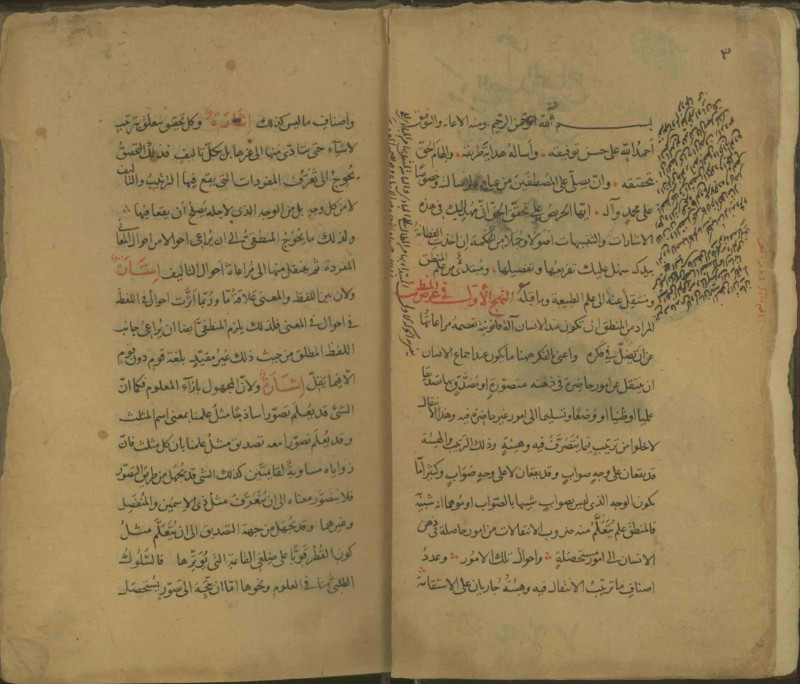 ٣
بسم الله الرحمن الرحيم ومنه الاعانة والتوفيق
أحمد الله على حسن توفيقه وأسأله هداية طريقه والهام الحق
بتحقيقه وان يصلى على المصطفين من عباده لرسالته وخصوصًا
على محمد وآله ايها الحريص على تحقق الحق انى مهد اليك فى هذه
الاشارات والتنبيهات اصولا وجملا من الحكمة ان اخذت الفطانة
بيدك سهل عليك تفريعها وتفصيلها ومبتدئ من علم المنطق
ومنتقل عنه الى علم الطبيعة وما قبله النهج الأول فى غرض المنطق
المراد من المنطق ان تكون عند الانسان آلة قانونية تعصمه مراعاتها
عن ان يضل فى فكره واعنى بالفكر ههنا ما يكون عند اجماع الانسان
ان ينتقل عن امور حاضرة فى ذهنه متصورة او مصدق بها تصديقا
علميا او ظنيا او وضعا وتسليما الى امور غير حاضرة فيه وهذا الانتقال
لا يخلوا من ترتيب فيما يتصرف فيه وهيئة وذلك الترتيب والهيئة
قد يقعان على وجه صواب وقد يقعان لا على وجه صواب وكثيرا ما
يكون الوجه الذى ليس بصواب شبيها بالصواب او موهما انه شبيه
فالمنطق علم يتعلم منه ضروب الانتقالات من امور حاصلة فى ذهن
الانسان الى امور مستحصلة واحوال تلك الامور وعدد
اصناف ما ترتيب الانتقال فيه وهيئته جاريان على الاستقامة
واصناف ما ليس كذلك إشارة وكل تحقيق متعلق بترتيب
الاشياء حتى يتادى منها الى غيرها بل بكل تاليف فذلك التحقيق
يحوج الى تعرف المفردات التى يقع فيها الترتيب والتاليف
لا من كل وجه بل من الوجه الذى لاجله يصلح ان يقعا فيها
ولذلك ما يحوج المنطقى الى ان يراعى احوالا من احوال المعانى
المفردة ثم ينتقل منها الى مراعاة احوال التاليف إشارة
ولان بين اللفظ والمعنى علاقة ما وربما اثرت احوال فى اللفظ
فى احوال فى المعنى فلذلك يلزم المنطقى ايضا ان يراعى جانب
اللفظ المطلق من حيث ذلك غير مقيد بلغة قوم دون قوم
الا فيما يقل إشارة ولان المجهول بازاء المعلوم فكما ان
الشئ قد يعلم تصورا ساذجا مثل علمنا بمعنى اسم المثلث
وقد يعلم تصورا معه تصديق مثل علمنا بان كل مثلث فان
زواياه مساوية لقائمتين كذلك الشئ قد يجهل من طريق التصور
فلا يتصور معناه الى ان يتعرف مثل ذى الاسمين والمنفصل
وغيرهما وقد يجهل من جهة التصديق الى ان يتعلم مثل
كون القطر قويا على ضلعى القائمة التى يوترها فالسلوك
الطلبى منا فى العلوم ونحوها اما ان يتجه الى تصور يستحصل